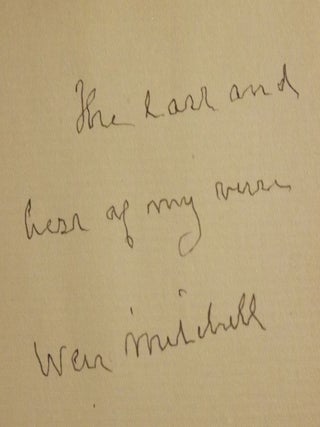 The last and
best of my verse
Weir Mitchell